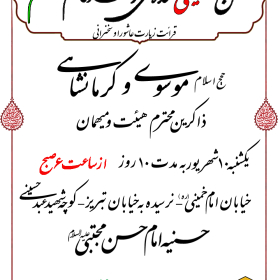 قرائت زیارت عاشورا و سخنرانی
حجج اسلام موسوی و کرمانشاهی
ذاکرین محترم هیئت و میهمان
یکشنبه ۱۰ شهریور به مدت ۱۰ روز از ساعت ۶ صبح
خیابان امام خمینی(ره) - نرسیده به خیابان تبریز - کوچه شهید عبدحسینی
حسینیه امام حسن مجتبی علیه السلام